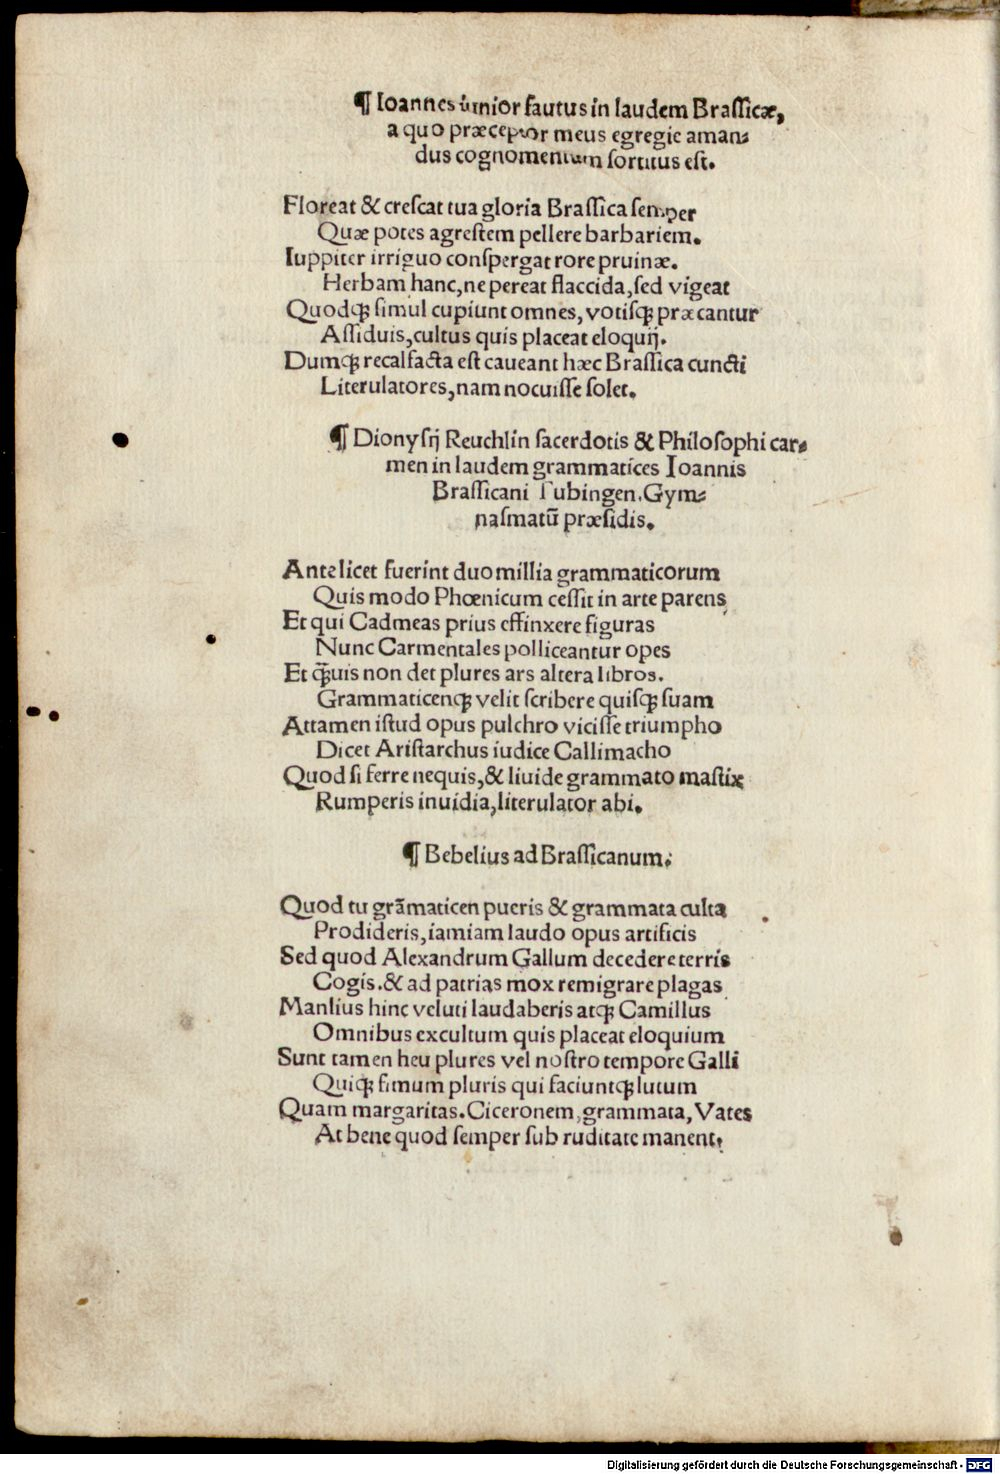 ¶ Ioannes iunior fautus in laudem Brassicæ,
a quo præceptor meus egregie aman⸗
dus cognomentum sortitus est.
Floreat & crescat tua gloria Brassica semper
Quæ potes agrestem pellere barbariem.
Iuppiter irriguo conspergat rore pruinæ.
Herbam hanc, ne pereat flaccida, sed vigeat
Quodqꝫ simul cupiunt omnes, votisqꝫ præcantur
Assiduis, cultus quis placeat eloquij.
Dumqꝫ recalfacta est caueant hæc Brassica cuncti
Literulatores, nam nocuisse solet.
¶ Dionysij Reuchlin sacerdotis & Philosophi car⸗
men in laudem grammatices Ioannis
Brassicani Tubingen. Gym⸗
nasmatū præsidis.
Ante licet fuerint duo millia grammaticorum
Quis modo Phœnicum cessit in arte parens
Et qui Cadmeas prius effinxere figuras
Nunc Carmentales polliceantur opes
Et qͣ̃uis non det plures ars altera libros.
Grammaticenqꝫ velit scribere quisqꝫ suam
Attamen istud opus pulchro vicisse triumpho
Dicet Aristarchus iudice Callimacho
Quod si ferre nequis, & liuide grammato mastix
Rumperis inuidia, literulator abi.
¶ Bebelius ad Brassicanum.
Quod tu grãmaticen pueris & grammata culta
Prodideris, iamiam laudo opus artificis
Sed quod Alexandrum Gallum decedere terris
Cogis. & ad patrias mox remigrare plagas
Manlius hinc veluti laudaberis atqꝫ Camillus
Omnibus excultum quis placeat eloquium
Sunt tamen heu plures vel nostro tempore Galli
Quiqꝫ fimum pluris qui faciuntqꝫ lutum
Quam margaritas. Ciceronem, grammata, Vates
At bene quod semper sub ruditate manent.
Digitalisierung gefördert durch die Deutsche Forschungsgemeinschaft - DFG